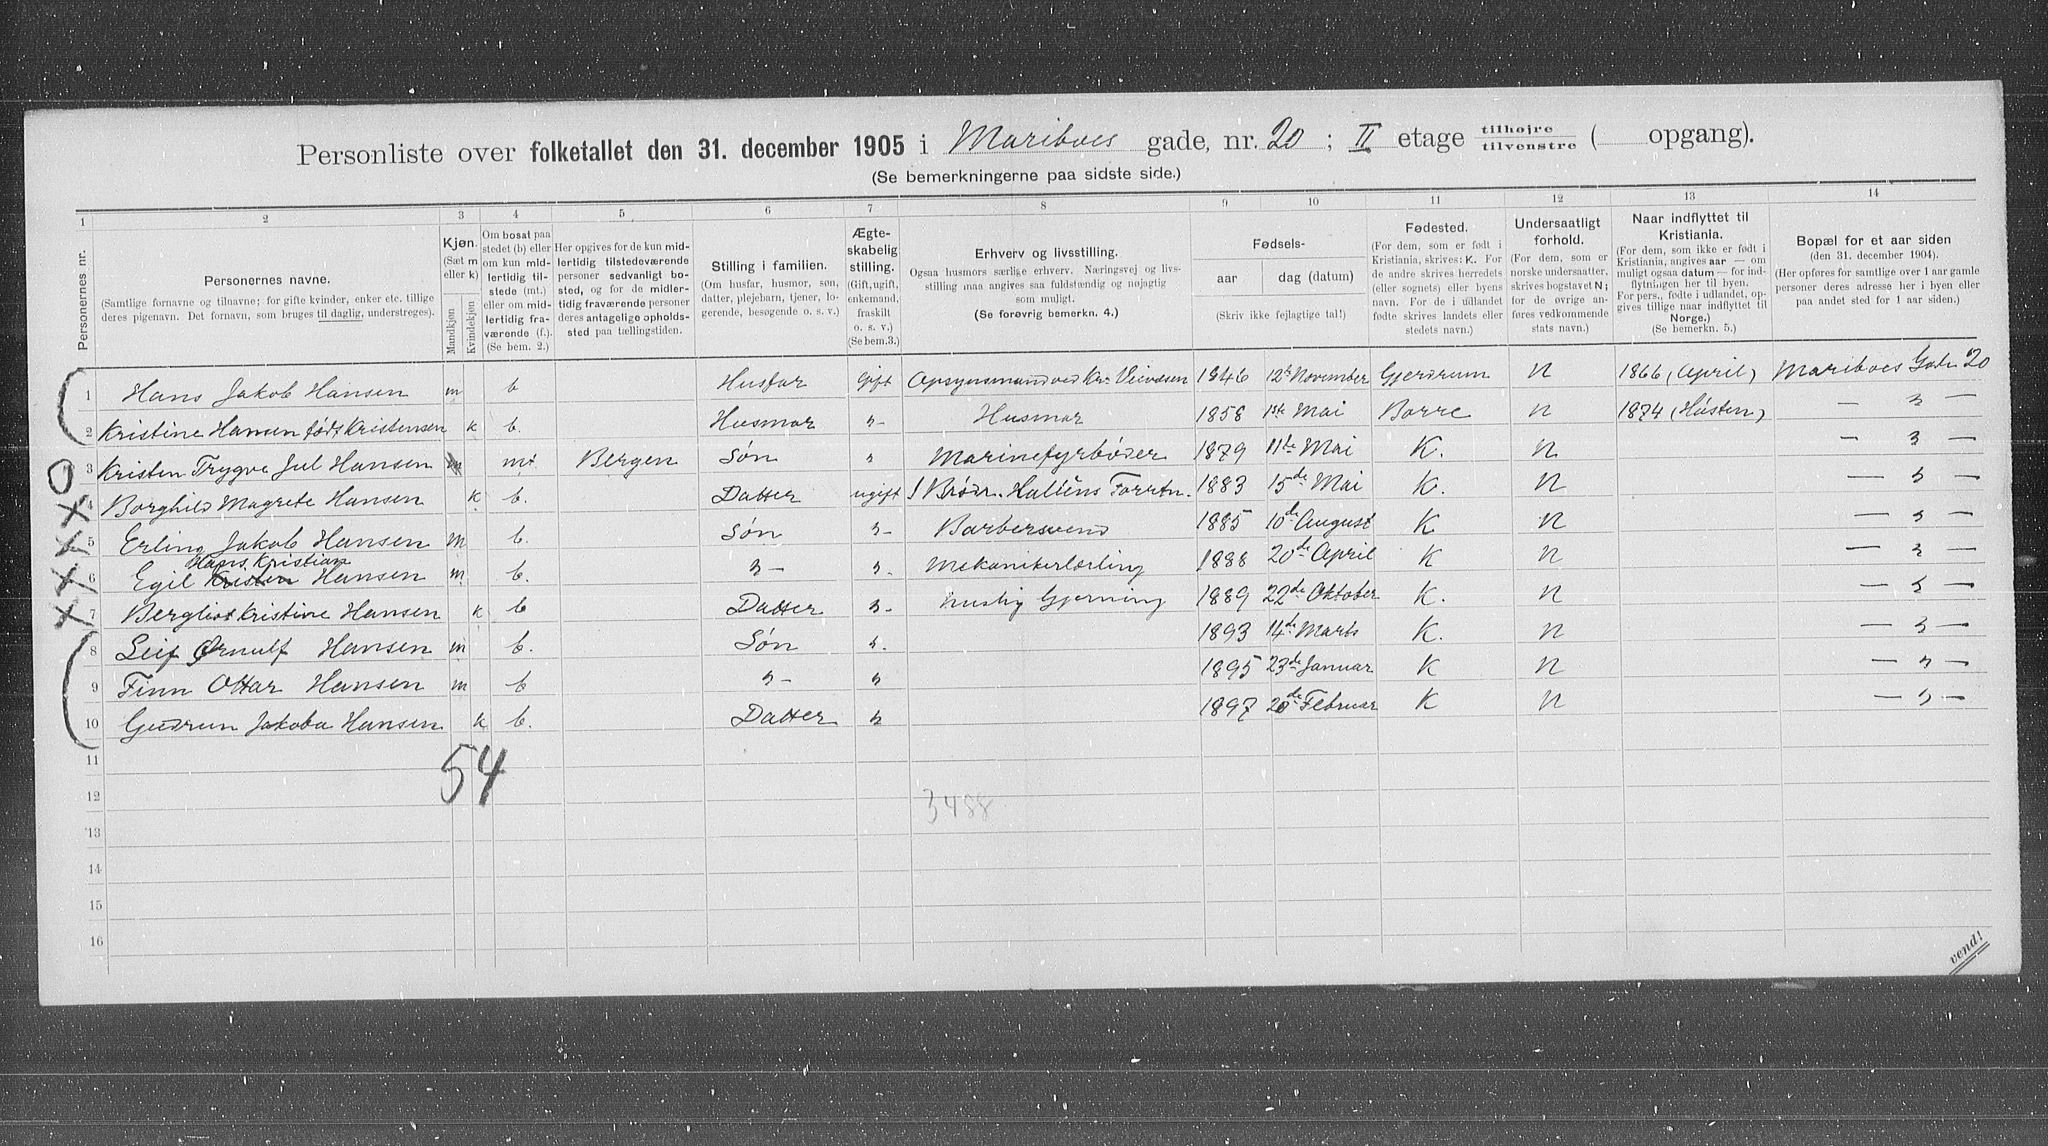 Personliste over folketallet den 31. december 1905 i Mariboes gade, nr. 20 ; II etage tilhøjre tilvenstre ( opgang).
(Se bemerkningerne paa sidste side.)
1 2 3 4 5 6 7 8 9 10 11 12 13 14
Personernes nr.
Personernes navne.
(Samtlige fornavne og tilnavne; for gifte kvinder, enker etc. tillige deres pigenavn. Det fornavn, som bruges til daglig, understreges).
Kjøn.
(Sæt m eller k)
Mandkjøn
Kvindekjøn
Om bosat paa stedet (b) eller om kun midlertidig tilstede (mt.) eller om midlertidig fraværende (f.). (Se bem. 2.)
Her opgives for de kun midlertidig tilstedeværende personer sedvanligt bosted, og for de midlertidig fraværende personer deres antagelige opholdssted paa tællingstiden.
Stilling i familien.
(Om husfar, husmor, søn, datter, plejebarn, tjener, logerende, besøgende o. s. v.)
Ægteskabelig stilling.
(Gift, ugift, enkemand, fraskilt o. s. v.) (Se bem. 3.)
Erhverv og livsstilling.
Ogsaa husmors særlige erhverv. Næringsvej og livsstilling maa angives saa fuldstændig og nøjagtig som muligt.
(Se forøvrig bemerkn. 4.)
Fødsels-
aar dag (datum)
(Skriv ikke fejlagtige tal!)
Fødested.
(For dem, som er født i Kristiania, skrives: K. For de andre skrives herredets (eller sognets) eller byens navn. For de i udlandet fødte skrives landets eller stedets navn.)
Undersaatligt forhold.
(For dem, som er norske undersaatter, skrives bogstavet N; for de øvrige anføres vedkommende stats navn.)
Naar indflyttet til Kristiania.
(For dem, som ikke er født i Kristiania, angives aar — om muligt ogsaa datum — for indflytningen her til byen. For pers., fødte i udlandet, opgives tillige naar indflyttet til Norge.)
(Se bemerkn. 5.)
Bopæl for et aar siden
(den 31. december 1904).
(Her opføres for samtlige over 1 aar gamle personer deres adresse her i byen eller paa andet sted for 1 aar siden.)
1 Hans Jakob Hansen m b Husfar Gift Opsynsmand ved Kr. Veivæsen 1846 12te November Gjerdrum N 1866 (April) Mariboes Gade 20
2 Kristine Hansen født Kristensen k b. Husmor " - Husmor 1858 1ste Mai Borre N 1874 (Høsten) — " —
3 Kristen Trygve Jul Hansen m mt Bergen Søn " Marinefyrbøder 1879 11te Mai K. N — " —
4 Borghild Magrete Hansen k b. Datter ugift I Brødr. Halléns Forretn. 1883 15de Mai K. N — " —
5 Erling Jakob Hansen m b. Søn " - Barbersvend 1885 10de August K N — " —
Hans Kristian
6 Egil Kristen Hansen m b. " - " - Mekanikerlærling 1888 20de April K N — " —
7 Bergliot Kristine Hansen k b Datter " - huslig Gjerning 1889 22de Oktober K. N — " —
8 Leif Ørnulf Hansen m b. Søn " - 1893 14de Marts K. N — " —
9 Finn Ottar Hansen m b " - " 1895 23de Januar K N — " —
10 Gudrun Jakoba Hansen k b. Datter " 1897 20de Februar K N — " —
11
54
12
3488
13
14
15
16
vend!